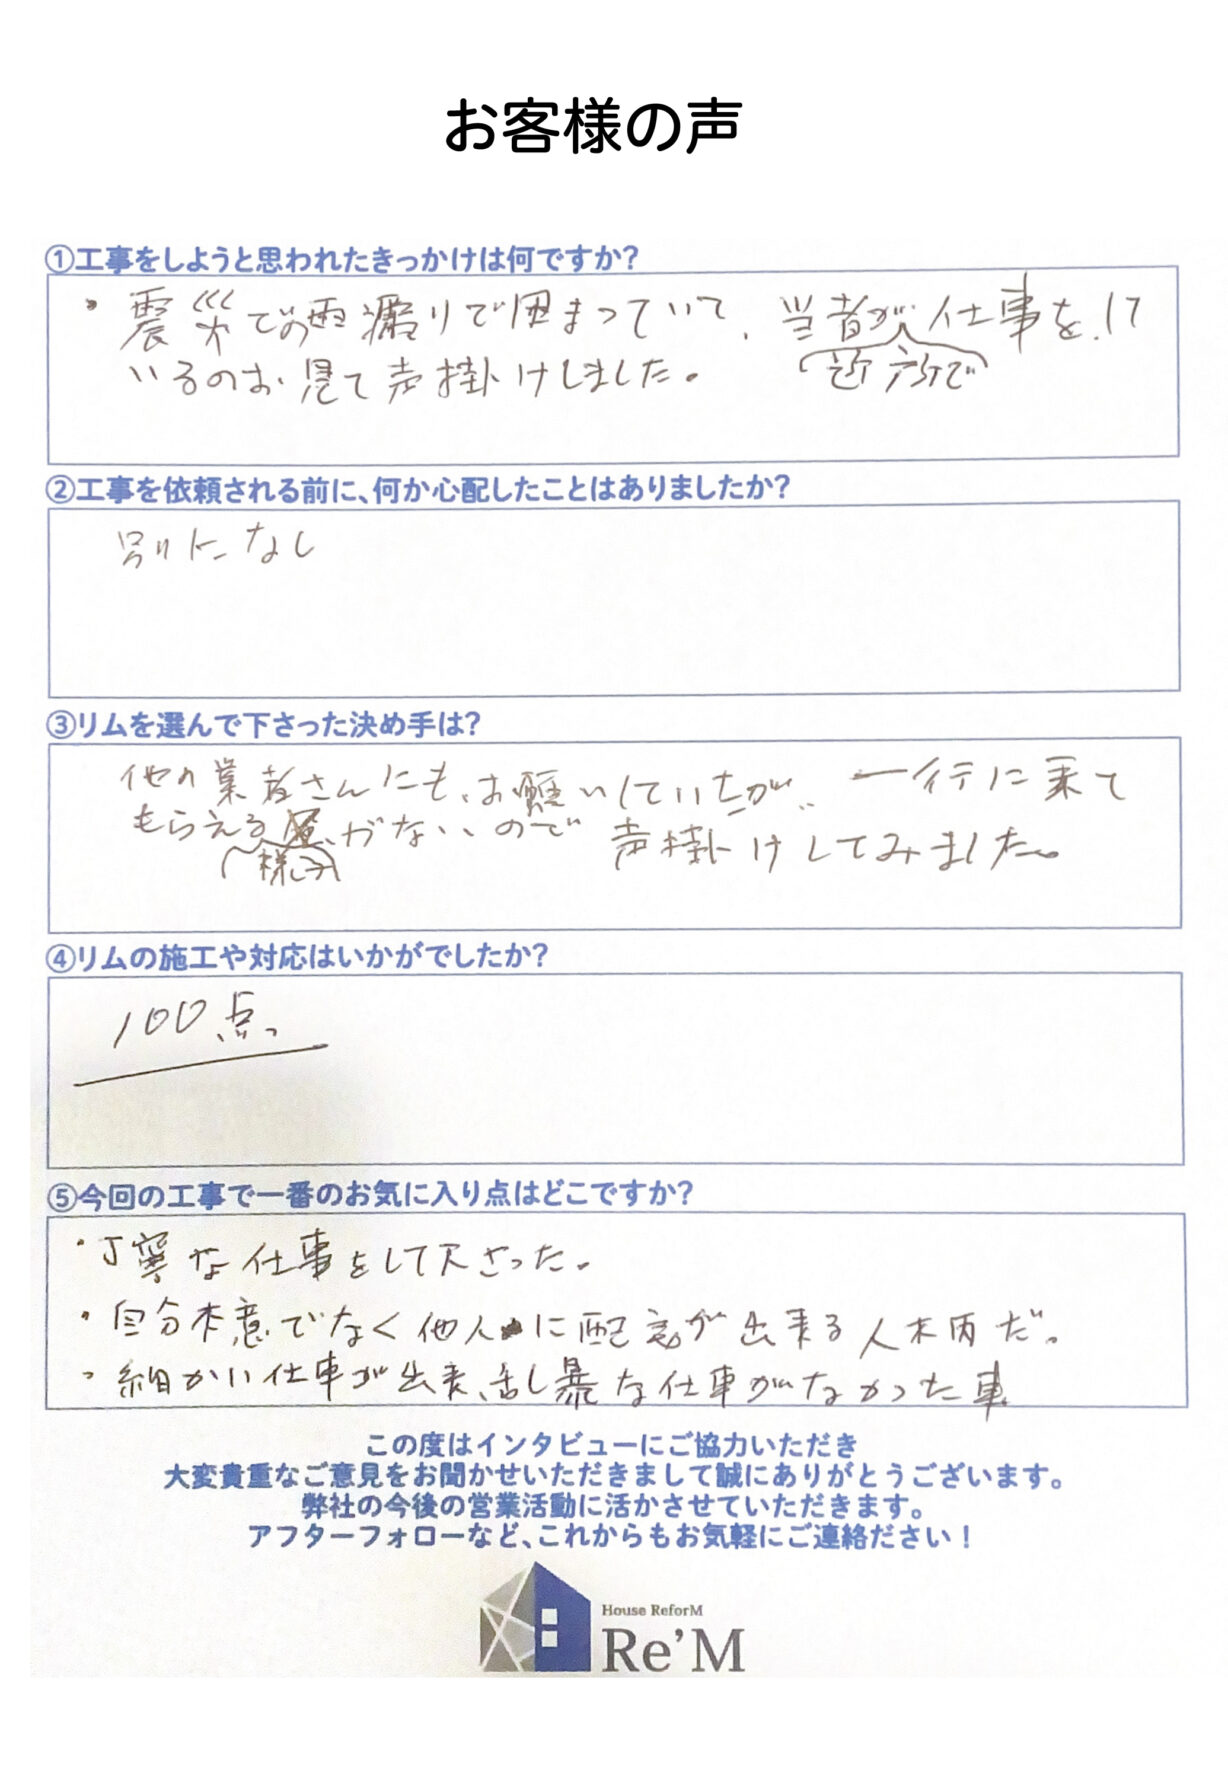 お客様の声
①工事をしようと思われたきっかけは何ですか?
・震災での雨漏りで困まっていて、当者が仕事をして
近所で
いるのお見て声掛けしました。
②工事を依頼される前に、何か心配したことはありましたか?
別になし
③リムを選んで下さった決め手は?
他の業者さんにも、お願いしていたが、一行に来て
もらえるがないので声掛けしてみました。
様子
④リムの施工や対応はいかがでしたか?
100点。
⑤今回の工事で一番のお気に入り点はどこですか?
・丁寧な仕事をして下さった。
・自分本意でなく他人に配慮が出来る人木丙だ。
・細かい仕事が出来、乱暴な仕事がなかった事
この度はインタビューにご協力いただき
大変貴重なご意見をお聞かせいただきまして誠にありがとうございます。
弊社の今後の営業活動に活かさせていただきます。
アフターフォローなど、これからもお気軽にご連絡ださい!
House ReforM
Re'M